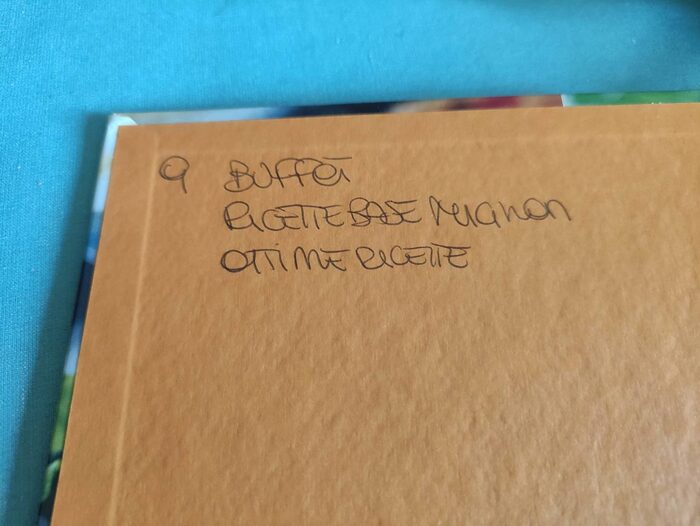 9 BUFFET
RICETTE BASE MIGNON
OTTIME RICETTE